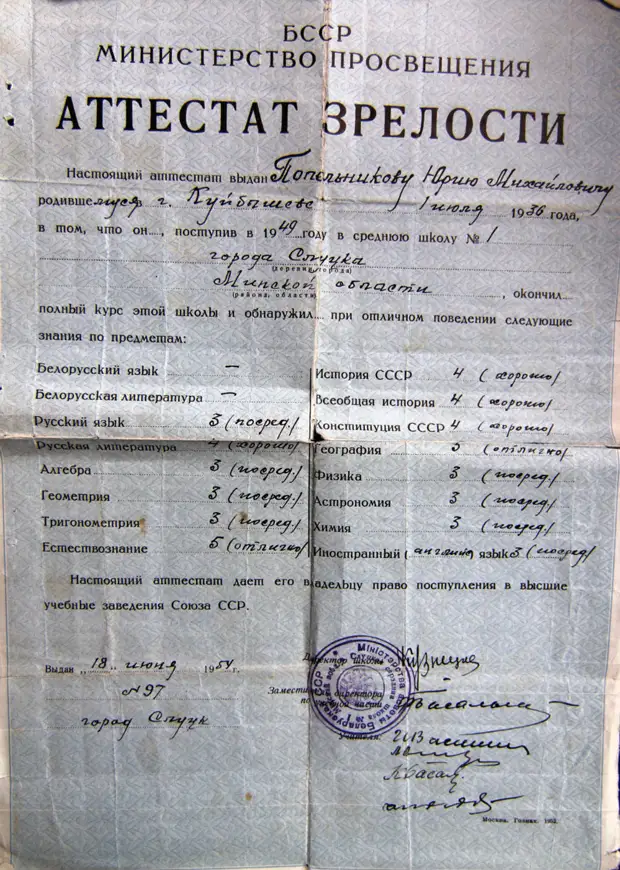 БССР
МИНИСТЕРСТВО ПРОСВЕЩЕНИЯ
АТТЕСТАТ ЗРЕЛОСТИ
Настоящий аттестат выдан Попельникову Юрию Михайловичу
родившемуся в г. Куйбышеве 1 июля 1936 года,
в том, что он, поступив в 1949 году в среднюю школу № 1
города Слуцка
(деревни, города)
Минской области, окончил
(района, области)
полный курс этой школы и обнаружил при отличном поведении следующие
знания по предметам:
Белорусский язык —
Белорусская литература —
Русский язык 3 (посред.)
Русская литература 4 (хорошо)
Алгебра 3 (посред.)
Геометрия 3 (посред.)
Тригонометрия 3 (посред.)
Естествознание 5 (отлично)
История СССР 4 (хорошо)
Всеобщая история 4 (хорошо)
Конституция СССР 4 (хорошо)
География 5 (отлично)
Физика 3 (посред.)
Астрономия 3 (посред.)
Химия 3 (посред.)
Иностранный (англий) язык 3 (посред)
Настоящий аттестат дает его владельцу право поступления в высшие
учебные заведения Союза ССР.
Выдан „18" июня 1954 г.
N 97
город Слуцк
Директор школы
Заместитель директора
по учебной части
Учителя:
Москва. Гознак. 1952.